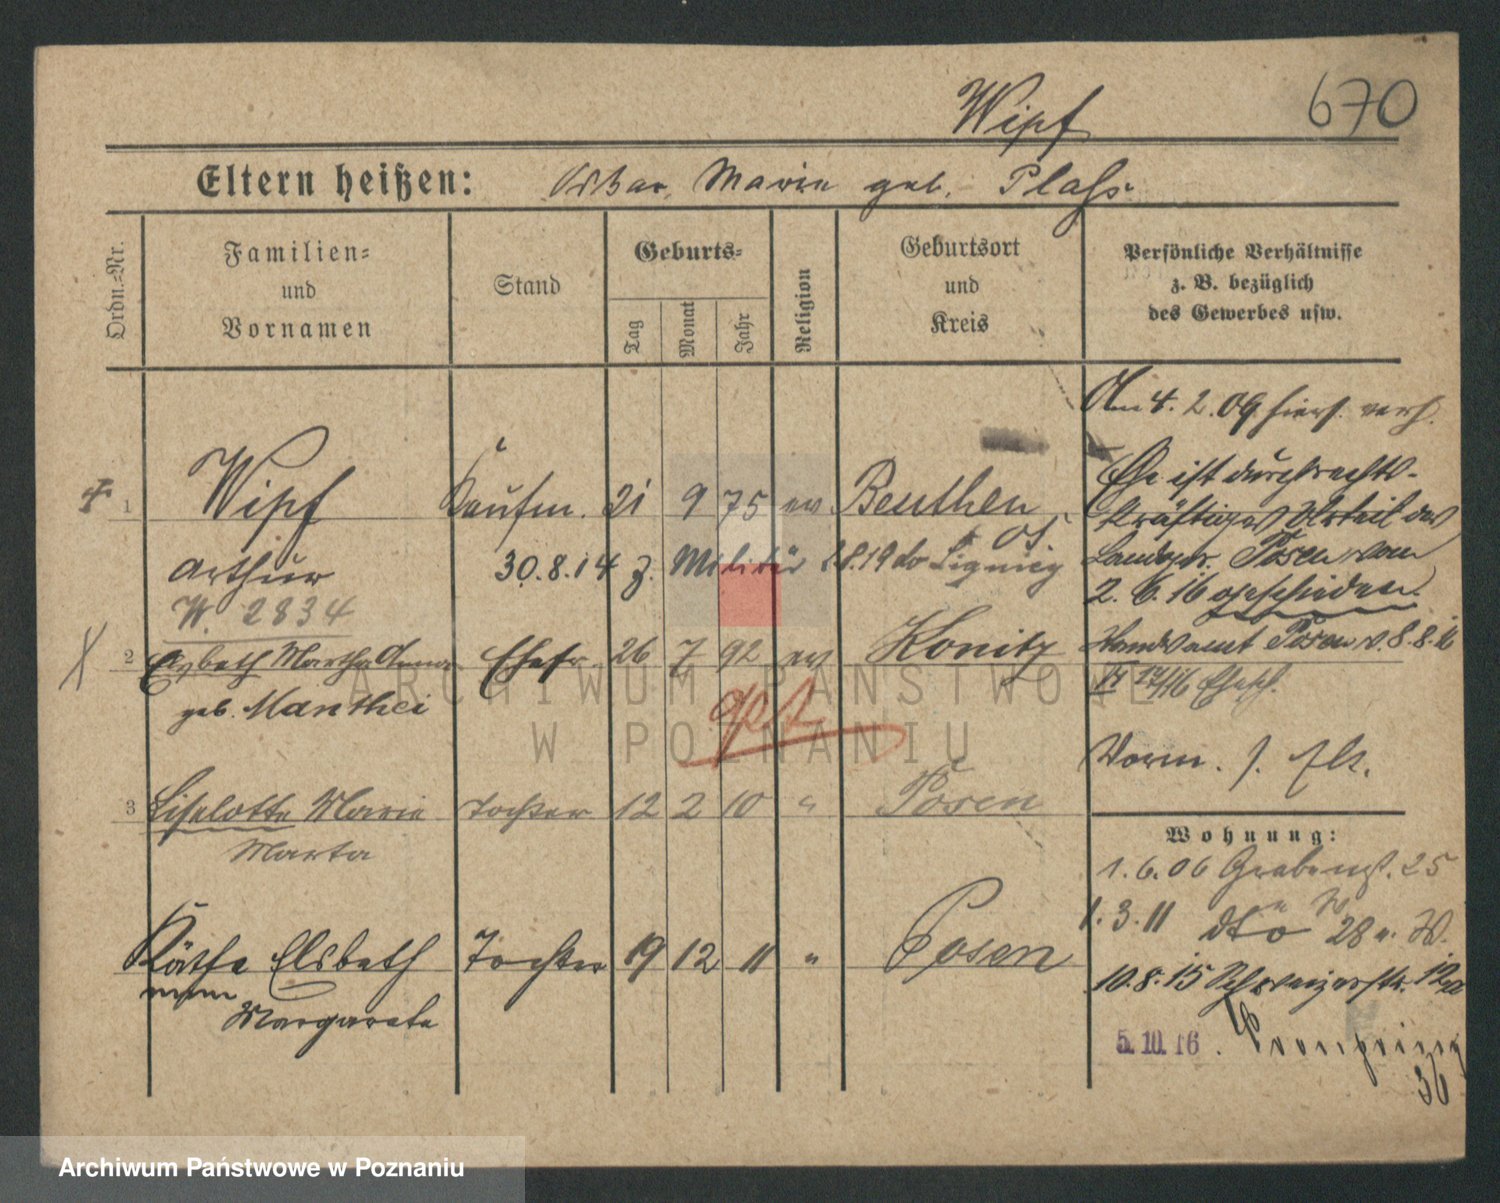 Wipf 670
Eltern heißen: Oskar, Marie geb. Plass
Ordn.=Nr.
Familien=
und
Vornamen
Stand
Geburts=
Tag
Monat
Jahr
Religion
Geburtsort
und
Kreis
Persönliche Verhältnisse
z. B. bezüglich
des Gewerbes usw.
1 Wipf Kaufm. 21 9 75 ev Beuthen
OS
Arthur 30.8.14 z. Militär
W. 2834
2 Elsbeth Martha Anna Ehefr 26 7 92 ev Konitz
geb. Manthei
3 Liselotte Marie Tochter 12 2 10 " Posen
Marta
Käthe Elsbeth Tochter 19 12 11 " Posen
Margarete
Am 4. 2. 09 hiers. verh.
Ehe ist durch rechts-
kräftiges Urteil des
Landger. Posen vom
2. 6. 16 geschieden.
Standesamt Posen v. 8.8.16
Vorm.
Wohnung:
1. 6. 06 Grabenst. 25
1. 3. 11 dto 28
10. 8. 15 Schweizerstr. 12a
5. 10. 16. Kronprinz
36
ARCHIWUM PAŃSTWOWE
W POZNANIU
Archiwum Państwowe w Poznaniu